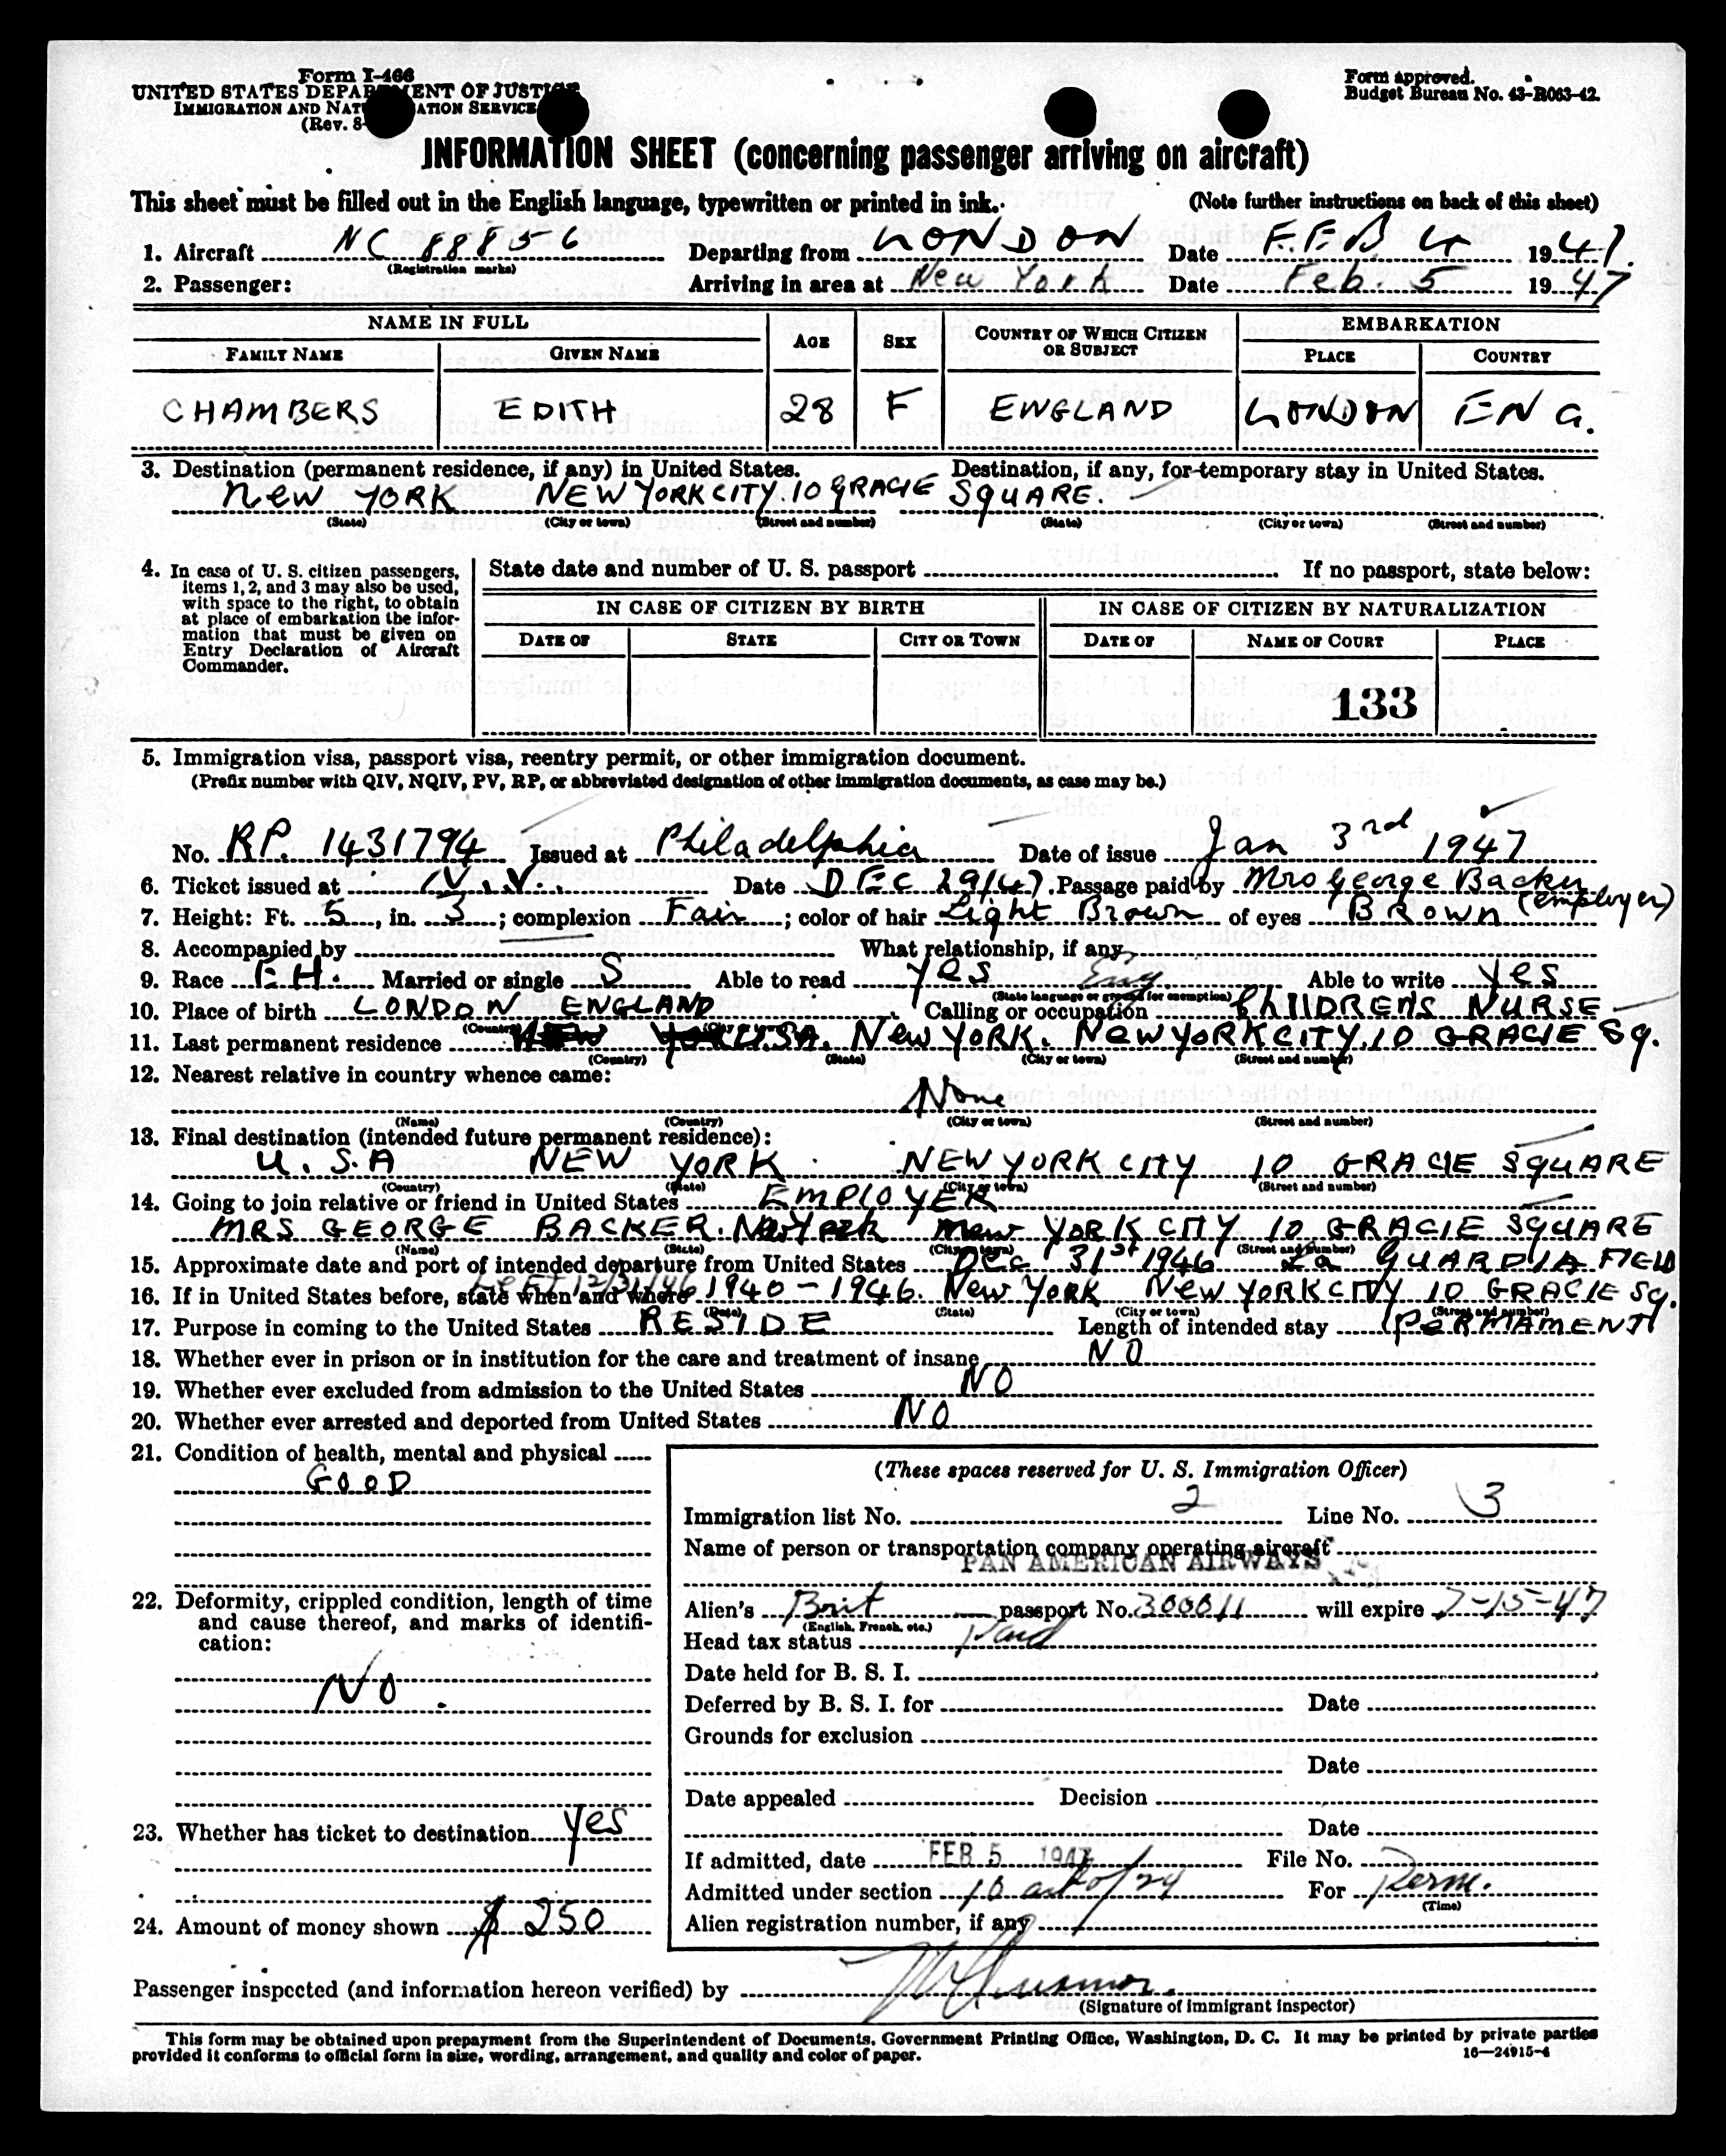 Form I-466
UNITED STATES DEPARTMENT OF JUSTICE
IMMIGRATION AND NATURALIZATION SERVICE
(Rev. 8-
Form approved.
Budget Bureau No. 43-R063-42.
INFORMATION SHEET (concerning passenger arriving on aircraft)
This sheet must be filled out in the English language, typewritten or printed in ink.
(Note further instructions on back of this sheet)
1. Aircraft NC 88856 Departing from LONDON Date FEB 4 1947.
(Registration marks)
2. Passenger: Arriving in area at New York Date Feb. 5 1947
NAME IN FULL AGE SEX COUNTRY OF WHICH CITIZEN OR SUBJECT EMBARKATION
FAMILY NAME GIVEN NAME PLACE COUNTRY
CHAMBERS EDITH 28 F ENGLAND LONDON ENG.
3. Destination (permanent residence, if any) in United States. Destination, if any, for temporary stay in United States.
New YORK NEW YORK CITY 10 GRACIE SQUARE.
(State) (City or town) (Street and number) (State) (City or town) (Street and number)
4. In case of U. S. citizen passengers,
items 1, 2, and 3 may also be used,
with space to the right, to obtain
at place of embarkation the infor-
mation that must be given on
Entry Declaration of Aircraft
Commander.
State date and number of U. S. passport If no passport, state below:
IN CASE OF CITIZEN BY BIRTH IN CASE OF CITIZEN BY NATURALIZATION
DATE OF STATE CITY OR TOWN DATE OF NAME OF COURT PLACE
133
5. Immigration visa, passport visa, reentry permit, or other immigration document.
(Prefix number with QIV, NQIV, PV, RP, or abbreviated designation of other immigration documents, as case may be.)
No. RP. 1431794 Issued at Philadelphia Date of issue Jan 3rd 1947
6. Ticket issued at N.Y. Date DEC 29/47. Passage paid by Mrs George Backer
(employer)
7. Height: Ft. 5, in. 3; complexion Fair; color of hair Light Brown of eyes BROWN
8. Accompanied by What relationship, if any
9. Race EH. Married or single S Able to read yes Eng. Able to write yes
(State language or ground for exemption)
10. Place of birth LONDON ENGLAND Calling or occupation ChILDRENS NURSE
(Country) (City or town)
11. Last permanent residence U.SA. New YORK. New YORK CITY. 10 GRACIE Sq.
(Country) (State) (City or town) (Street and number)
12. Nearest relative in country whence came:
None
(Name) (Country) (City or town) (Street and number)
13. Final destination (intended future permanent residence):
U.S.A NEW YORK NEW YORK CITY 10 GRACIE SQUARE
(Country) (State) (City or town) (Street and number)
14. Going to join relative or friend in United States EMPLOYER
MRS GEORGE BACKER. New York new YORK CITY 10 GRACIE SQUARE
(Name) (State) (City or town) (Street and number)
15. Approximate date and port of intended departure from United States Dec 31st 1946 La GUARDIA FIELD
Left 12/31/46
16. If in United States before, state when and where 1940-1946. New York New YORK CITY 10 GRACIE Sq.
(Date) (State) (City or town) (Street and number)
17. Purpose in coming to the United States RESIDE Length of intended stay PERMAMENT
18. Whether ever in prison or in institution for the care and treatment of insane NO
19. Whether ever excluded from admission to the United States NO
20. Whether ever arrested and deported from United States NO
21. Condition of health, mental and physical
GOOD
22. Deformity, crippled condition, length of time
and cause thereof, and marks of identifi-
cation:
NO.
23. Whether has ticket to destination yes
24. Amount of money shown $ 250
(These spaces reserved for U. S. Immigration Officer)
Immigration list No. 2 Line No. 3
Name of person or transportation company operating aircraft
PAN AMERICAN AIRWAYS
Alien's Brit passport No. 300011 will expire 7-15-47
(English, French, etc.)
Head tax status Paid
Date held for B. S. I.
Deferred by B. S. I. for Date
Grounds for exclusion
Date
Date appealed Decision
Date
If admitted, date FEB 5 1947 File No.
Admitted under section 10 act of 24 For Perm.
(Time)
Alien registration number, if any
Passenger inspected (and information hereon verified) by
(Signature of immigrant inspector)
This form may be obtained upon prepayment from the Superintendent of Documents, Government Printing Office, Washington, D. C. It may be printed by private parties
provided it conforms to official form in size, wording, arrangement, and quality and color of paper.
16—24915-4